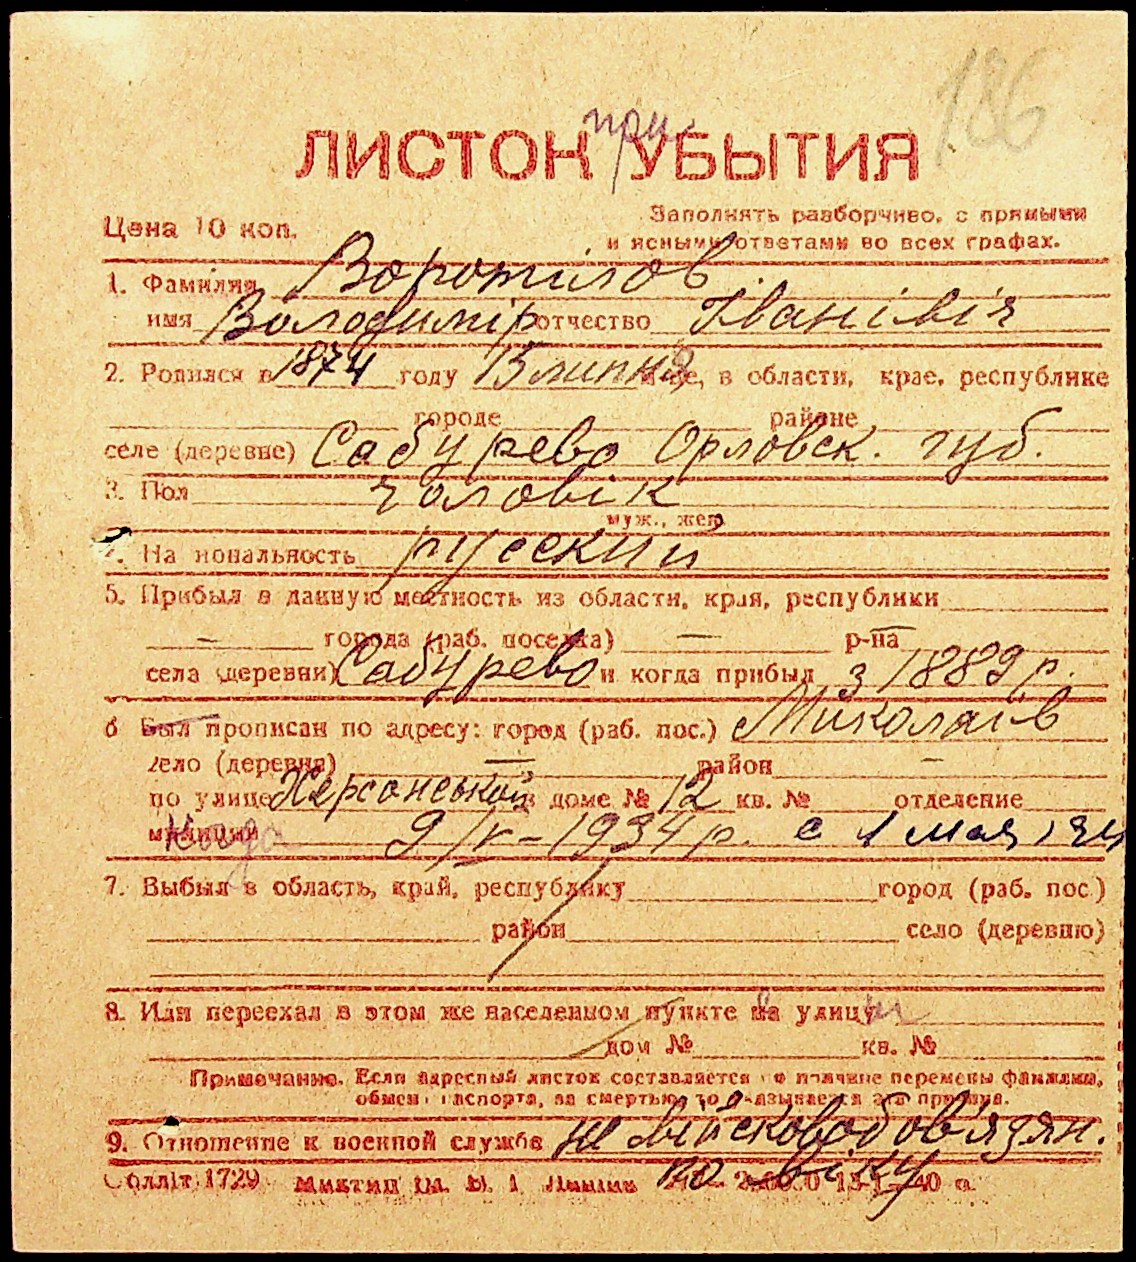 186
при
ЛИСТОК УБЫТИЯ
Цена 10 коп.
Заполнять разборчиво, с прямыми
и ясными ответами во всех графах.
1. Фамилия Воротілов
имя Володимір отчество Іванівіч
2. Родился в 1874 году 15 липня м-це, в области, крае, республике
городе районе
селе (деревне) Сабурево Орловск. губ.
3. Пол чоловік
муж., жен.
4. Национальность русский
5. Прибыл в данную местность из области, края, республики
— города (раб. поселка) — р-на —
села (деревни) Сабурево и когда прибыл з 1889 р.
6 Был прописан по адресу: город (раб. пос.) Миколаїв
село (деревня) — район —
по улице Херсонській в доме № 12 кв. № отделение
милиции Когда 9/IV–1934 р. с 1 мая
7. Выбыл в область, край, республику город (раб. пос.)
район село (деревню)
8. Или переехал в этом же населенном пункте на улицу
дом № кв. №
Примечание. Если адресный листок составляется по причине перемены фамилии,
обмена паспорта, за смертью, то указывается эта причина.
9. Отношение к военной службе не військовообов'язан.
по віку
Обллiт 1729